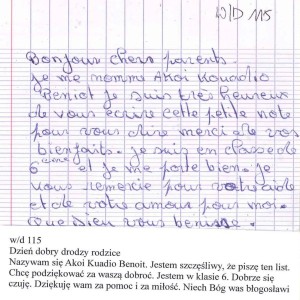 W/D 115
Bonjour chers parents.
Je me nomme Akoi Kouadio
Benict je suis très heureux
de vous écrire cette petite note
pour vous dire merci de vos
bienfaits. je suis en classe de
6ème et je me porte bien. je
vous remercie pour votre aide
et de votre amour pour moi.
Que Dieu vous benisse.
w/d 115
Dzień dobry drodzy rodzice
Nazywam się Akoi Kuadio Benoit. Jestem szczęśliwy, że piszę ten list.
Chcę podziękować za waszą dobroć. Jestem w klasie 6. Dobrze się
czuję. Dziękuję wam za pomoc i za miłość. Niech Bóg was błogosławi